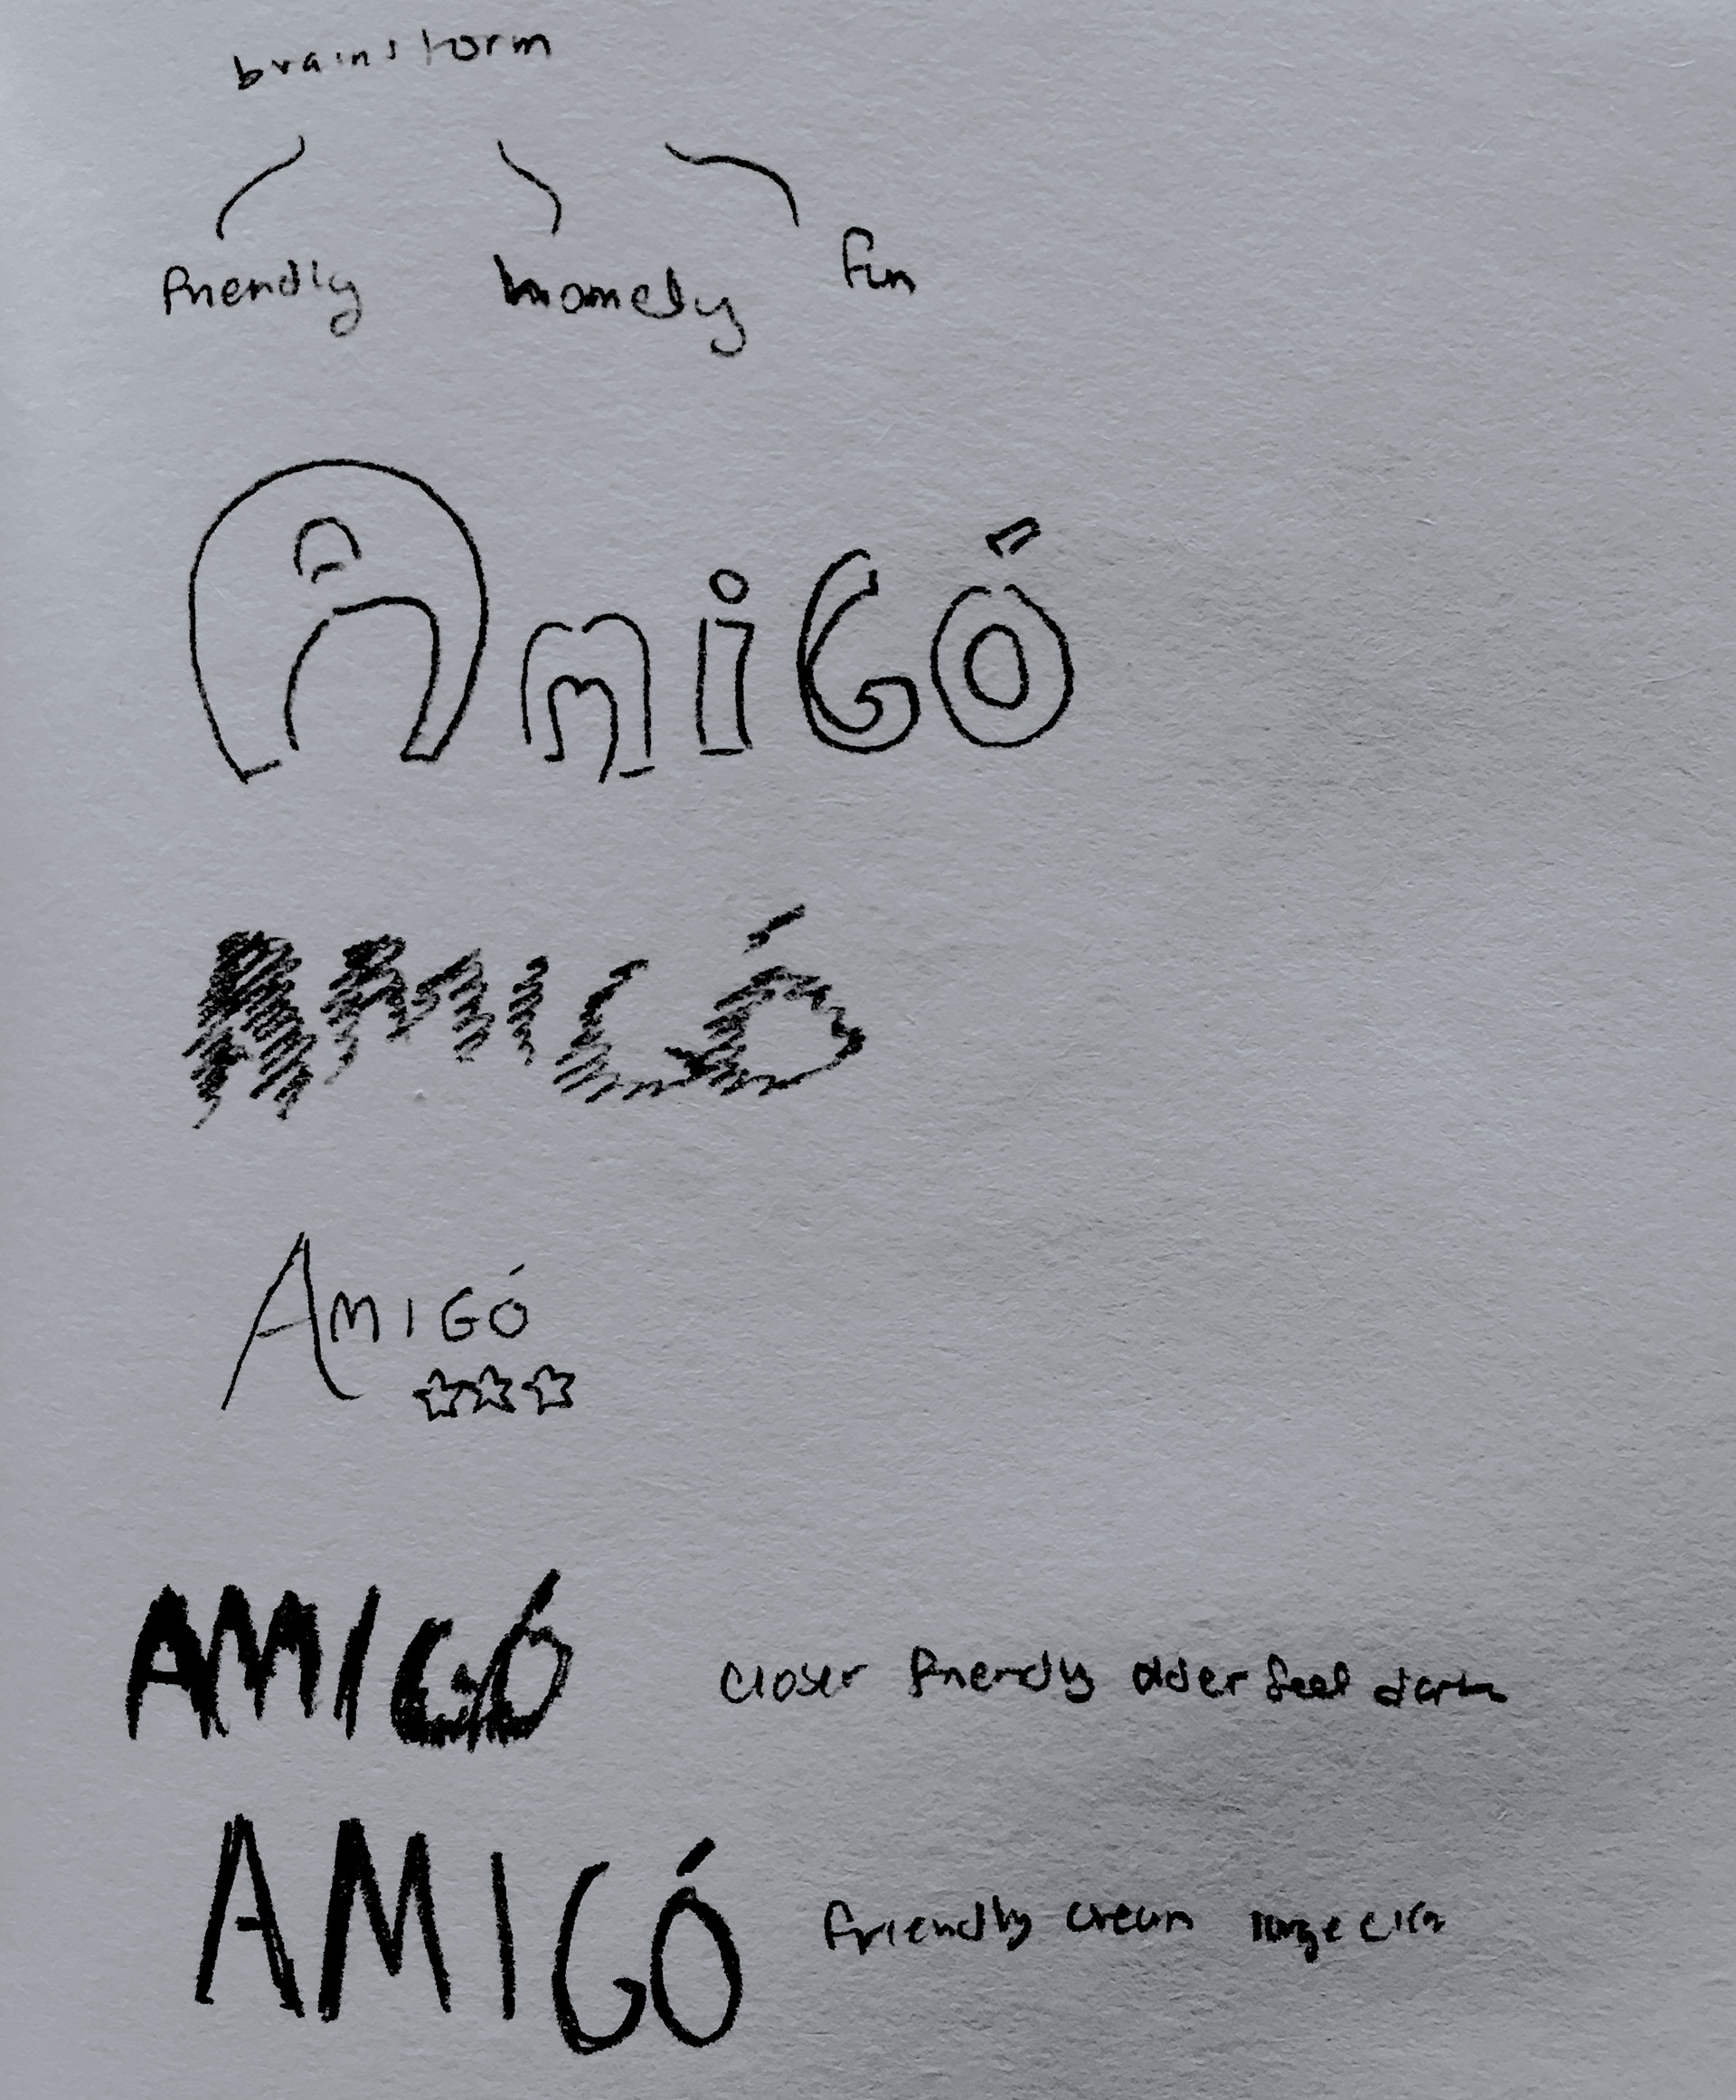 brainstorm
friendly homely fun
AmiGó
AMIGÓ
AMIGÓ
AMIGÓ closer friendly older feel dark
AMIGÓ friendly clean